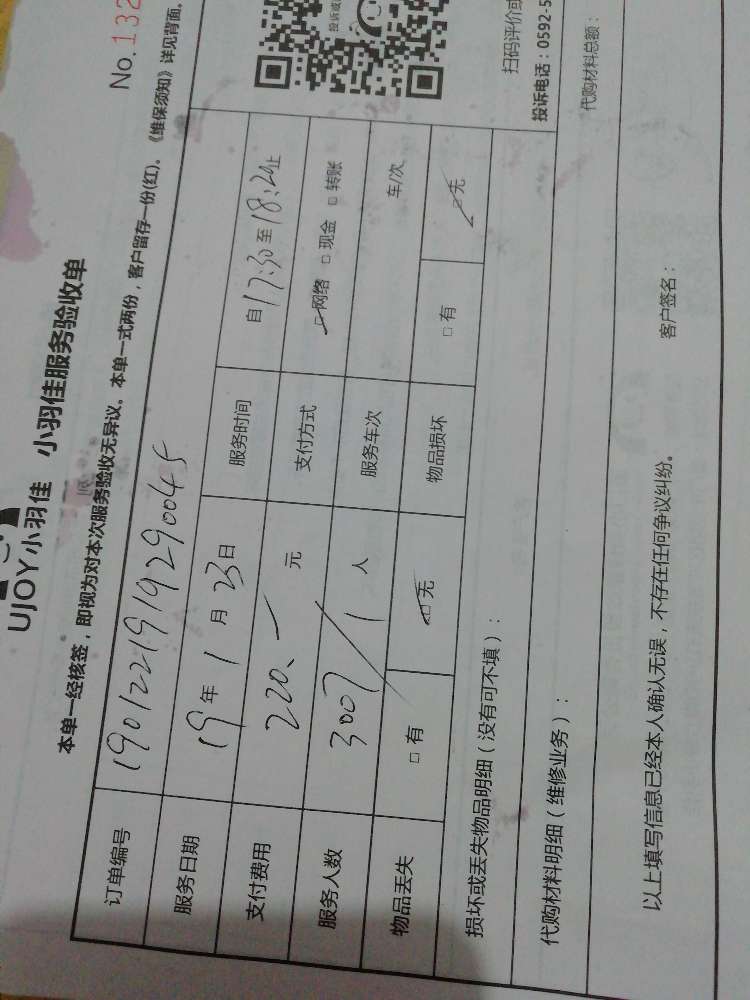 UJOY小羽佳 小羽佳服务验收单
No.132
本单一经核签，即视为对本次服务验收无异议。本单一式两份，客户留存一份(红)。《维保须知》详见背面。
订单编号 1901221919290045
服务日期 19年1月23日 服务时间 自17:30至18:20止
支付费用 220.一元 支付方式 ☑网络 □现金 □转账
服务人数 3007/1人 服务车次 车/次
物品丢失 □有 ☑无 物品损坏 □有 ☑无
损坏或丢失物品明细（没有可不填）：
扫码评价或
投诉电话：0592-5
代购材料明细（维修业务）： 代购材料总额：
以上填写信息已经本人确认无误，不存在任何争议纠纷。
客户签名：